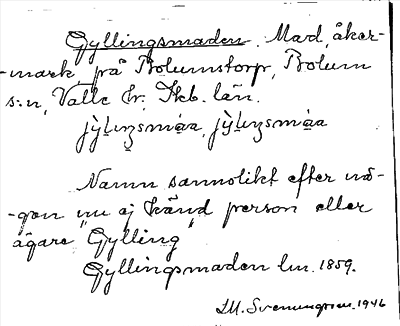 Gyllingsmaden. Mad, åker-
-mark på Bolumstorp, Bolum
s:n, Valle hr. Skb. län.
jỳḷiŋsmaa, jỳḷiŋsmaa
Namn sannolikt efter nå-
-gon nu ej känd person eller
ägare "Gylling"
Gyllingsmaden lm. 1859.
1946